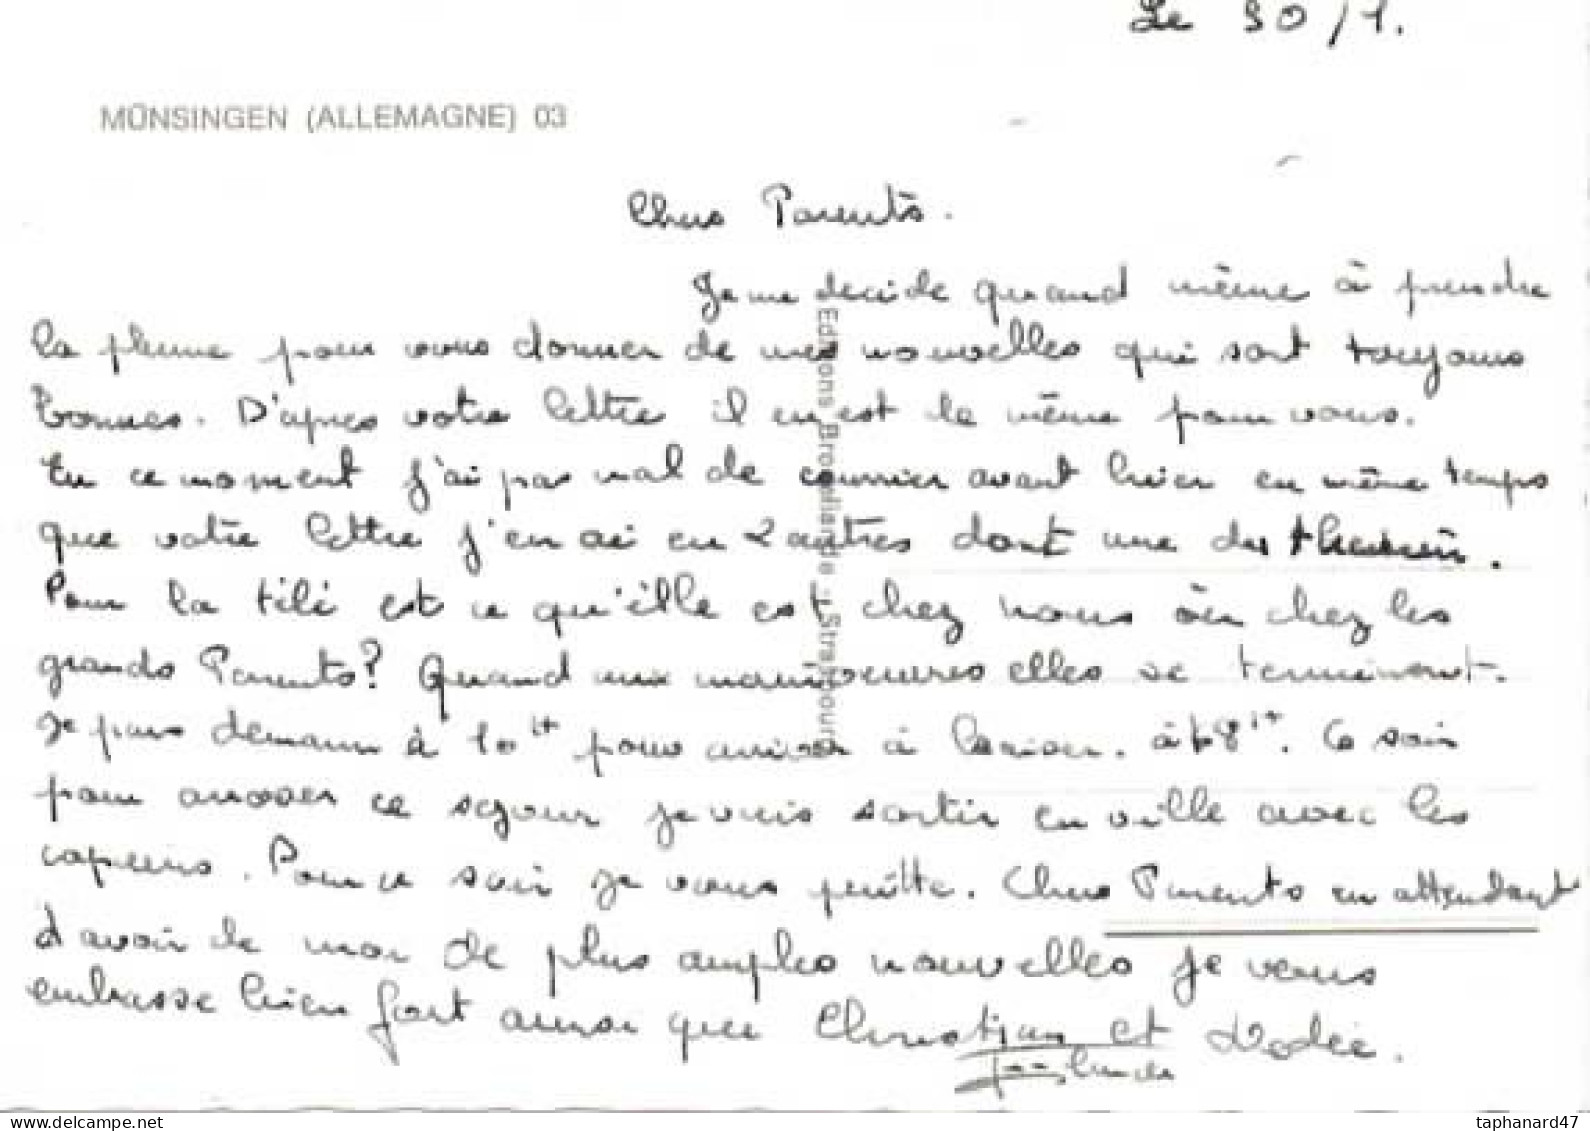 Le 30/1.
MÜNSINGEN (ALLEMAGNE) 03
Chers Parents.
Je me decide quand même à prendre
la plume pour vous donner de mes nouvelles qui sont toujours
bonnes. D'apres votre lettre il en est de même pour vous.
En ce moment j'ai pas mal de courrier avant hier en même temps
que votre lettre j'en ai eu 2 autres dont une du
Pour la titi est ce qu'elle est chez nous ou chez les
grands Parents? Quand aux manœuvres elles se terminent.
Je pars demain à 10H pour arriver à à 18H. Ce soir
pour arroser ce sejour je vais sortir en ville avec les
copains. Pour ce soir je vous quitte. Chers Parents en attendant
d'avoir de moi de plus amples nouvelles je vous
embrasse bien fort ainsi que Christian et
Editions Brocéliande - Strasbourg
www.delcampe.net
taphanard47